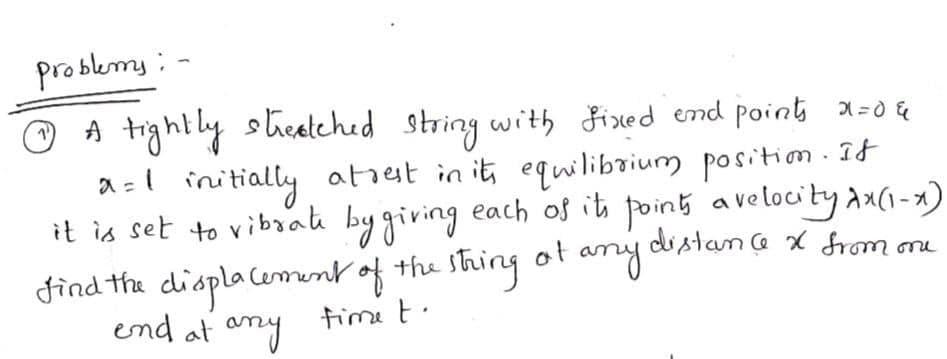 problems :-
① A tightly stretched string with fixed end points x=0 &
x=l initially at rest in its equilibrium position. If
it is set to vibrate by giving each of its points a velocity λx(l-x)
find the displacement of the string at any distance x from one
end at any time t.